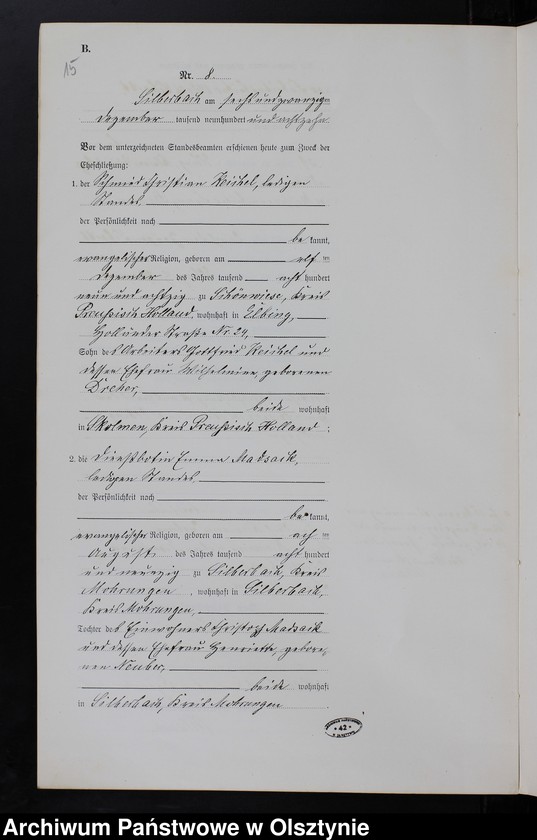 B.
15
Nr. 8.
Silberbach am sechsundzwanzigsten
Dezember tausend neunhundert und achtzehn
Vor dem unterzeichneten Standesbeamten erschienen heute zum Zweck der
Eheschließung:
1. der Schmied Christian Reichel, ledigen
Standes,
der Persönlichkeit nach
be kannt,
evangelischer Religion, geboren am elf ten
Dezember des Jahres tausend acht hundert
neun und achtzig zu Schönwiese, Kreis
Preußisch Holland, wohnhaft in Elbing,
Holländer Straße Nr. 24,
Sohn des Arbeiters Gottfried Reichel und
dessen Ehefrau Wilhelmine, geborenen
beide wohnhaft
in Skolmen, Kreis Preußisch Holland ;
2. die Dienstbotin Emma Madsack,
ledigen Standes
der Persönlichkeit nach
be kannt,
evangelischer Religion, geboren am ach ten
August des Jahres tausend acht hundert
und neunzig zu Silberbach, Kreis
Mohrungen, wohnhaft in Silberbach,
Kreis Mohrungen,
Tochter des Einwohners Christoph Madsack
und dessen Ehefrau Henriette, gebore-
nen Neuber,
beide wohnhaft
in Silberbach, Kreis Mohrungen
42
Archiwum Państwowe w Olsztynie